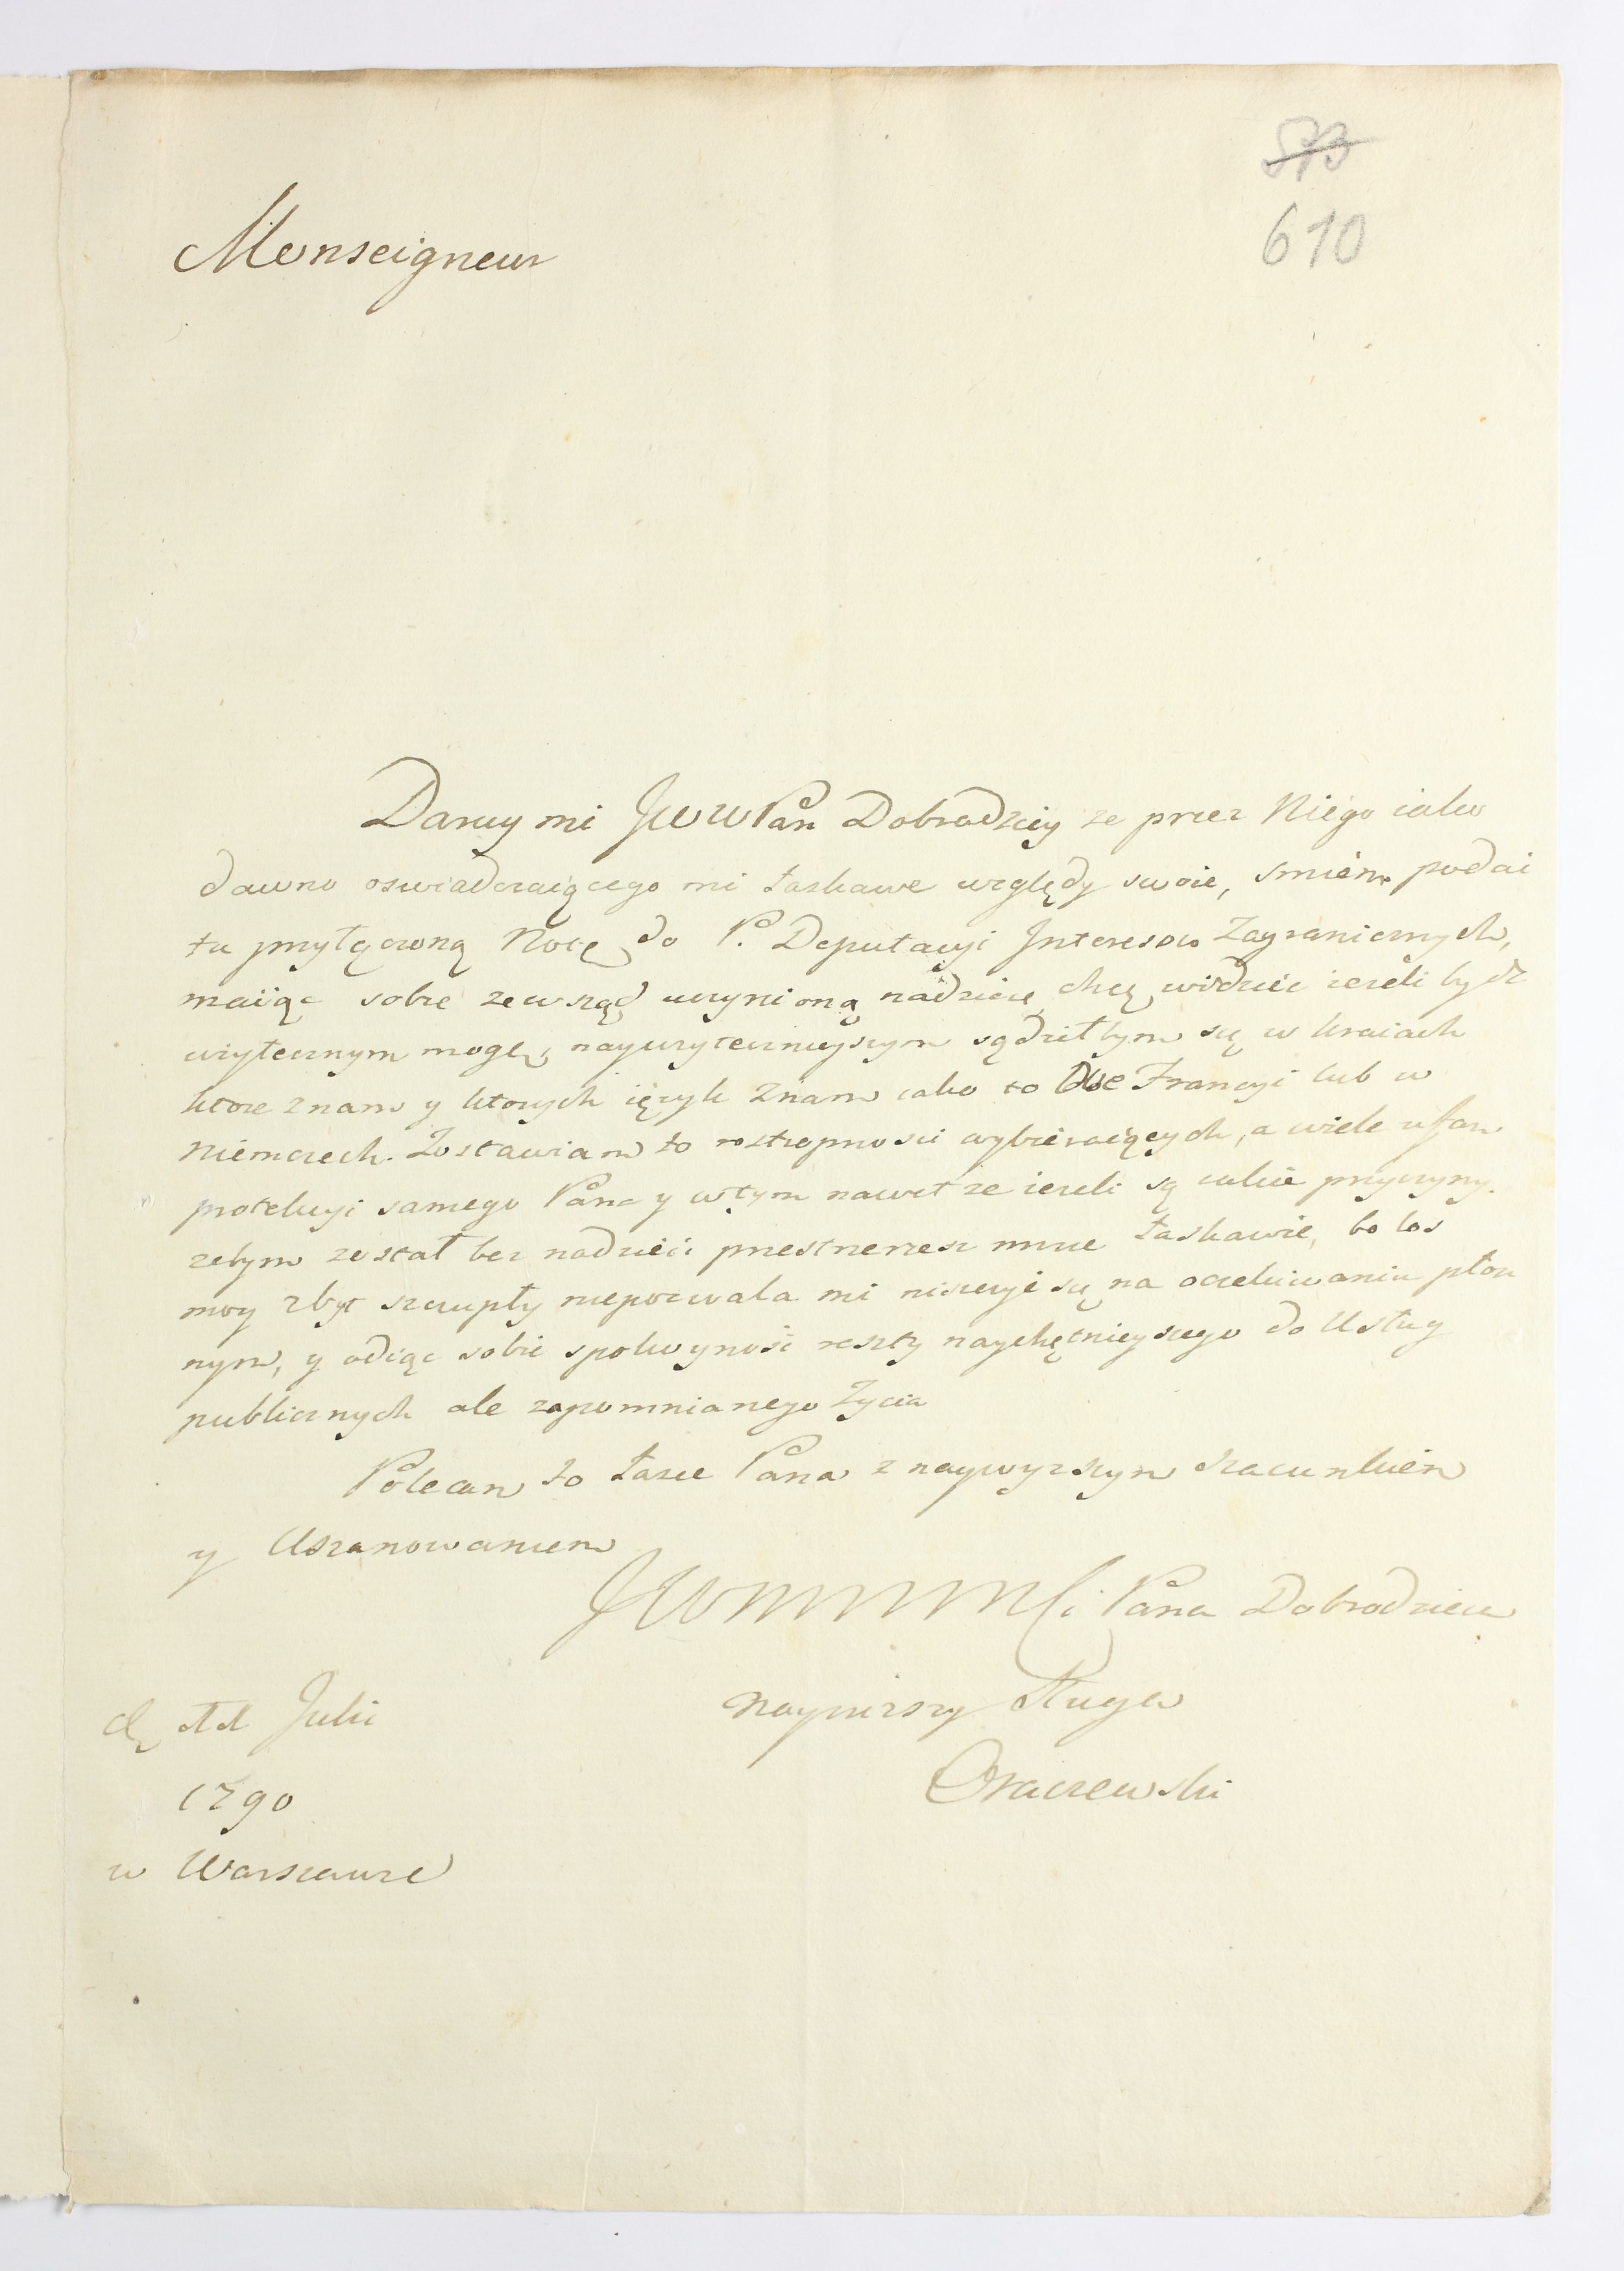 573
610
Monseigneur
Daruy mi JWWPan Dobrodziey ze przez Niego iako
dawno oswiadczaiącego mi łaskawe względy swoie, smiem podai
tu przyłączoną Notę do P. Deputacyi Jnteresow Zagranicznych,
maiąc sobie zewsząd uczynioną nadzieię chcę widziec iezeli bydz
uzytecznym mogę, nayuzytecznieyszym sądziłbym się w kraiach
ktore znam y ktorych ięzyk znam iako to we Francyi lub w
Niemczech. Zostawiam to rostropnosci wybieraiących, a wiele ufam
protekcyi samego Pana y w tym nawet ze iezeli są iakie przyczyny
zebym został bez nadzieii przestrzezesz mnie łaskawie, bo los
moy zbyt szczupły niepozwala mi nisczyc się na oczekiwaniu płon
nym, y odiąc sobie spokoynosc reszty naychętnieyszego do Usług
publicznych ale zapomnianego Zycia
Polecam to łasce Pana z naywyzszym szacunkiem
y Uszanowaniem
Pana Dobrodzieia
naynizszy Sługa
Oraczewski
Julii
1790
w Warszawie